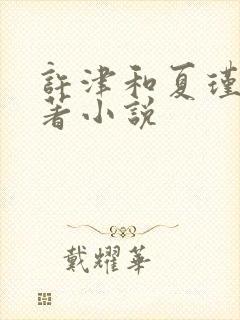 許津和夏瑾
著小說
戴耀華